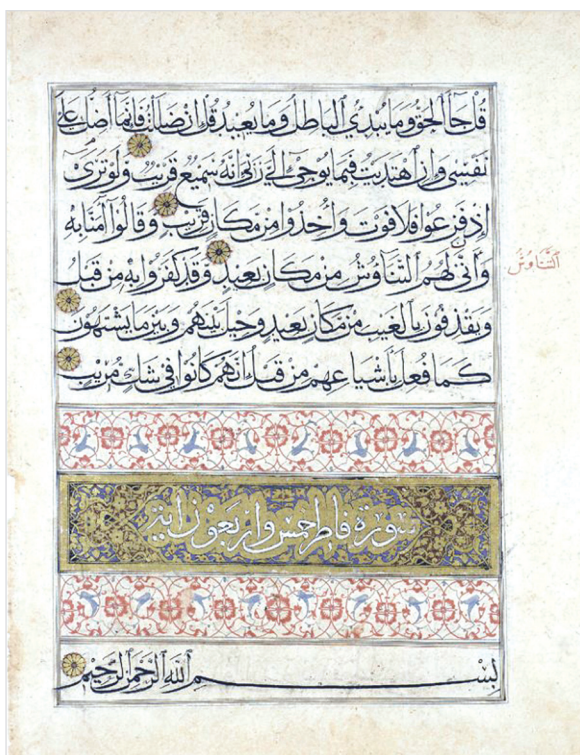 قُلْ جَآءَ الْحَقُّ وَمَا يُبْدِئُ الْبَاطِلُ وَمَا يُعِيدُ قُلْ إِنْ ضَلَلْتُ فَإِنَّمَا أَضِلُّ عَلَى
نَفْسِي وَإِنِ اهْتَدَيْتُ فَبِمَا يُوحِي إِلَيَّ رَبِّي إِنَّهُ سَمِيعٌ قَرِيبٌ وَلَوْ تَرَى
إِذْ فَزِعُوا فَلَا فَوْتَ وَأُخِذُوا مِنْ مَكَانٍ قَرِيبٍ وَقَالُوا آمَنَّا بِهِ
وَأَنَّى لَهُمُ التَّنَاوُشُ مِنْ مَكَانٍ بَعِيدٍ وَقَدْ كَفَرُوا بِهِ مِنْ قَبْلُ
التَّنَاوُشُ
وَيَقْذِفُونَ بِالْغَيْبِ مِنْ مَكَانٍ بَعِيدٍ وَحِيلَ بَيْنَهُمْ وَبَيْنَ مَا يَشْتَهُونَ
كَمَا فُعِلَ بِأَشْيَاعِهِمْ مِنْ قَبْلُ إِنَّهُمْ كَانُوا فِي شَكٍّ مُرِيبٍ
سورة فاطر خمس واربعون اية
بِسْمِ اللَّهِ الرَّحْمَنِ الرَّحِيمِ